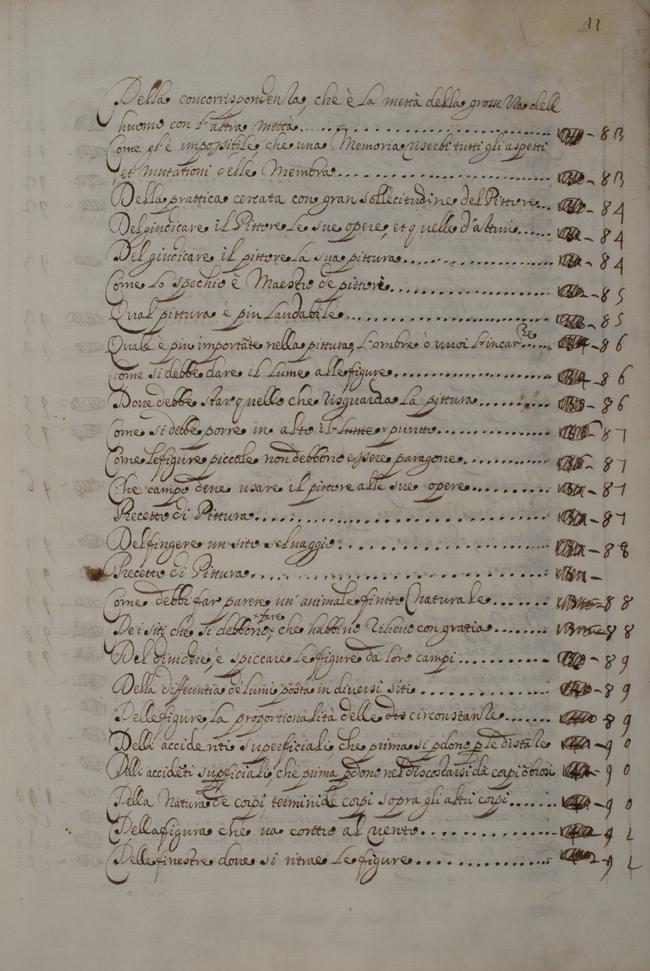 11
Della concorrispondenza, che è la mettà della grossezza dell
huomo con l'altra mettà - 83
Come gl'è impossibile, che una Memoria riserbi tutti gli aspetti
et mutationi delle Membra - 83
Della prattica cercata con gran sollecitudine del Pittore - 84
Del giudicare il Pittore le sue opere, et quelle d'altrui - 84
Del giudicare il pittore la sua pittura - 84
Come lo specchio è Maestro de pittori - 85
Qual pittura è piu laudabile - 85
Quale è piu importate nella pittura, l'ombre ò vuoi l'incar - 86
Come si debbe dare il lume alle figure - 86
Dove debbe star quello che risguarda la pittura - 86
Come si debbe porre in alto il punto - 87
Come le figure piccole non debbono essere 87
Che campo deve usare il pittore alle sue opere - 87
Precetto di Pittura - 87
Del fingere un sito selvaggio - 88
Precetto di Pittura -
Come debbi far parere un' animale finto naturale - 88
Dei siti che si debbono fare che habbino rilievo con gratia - 88
Del dividere, è spiccare le figure da loro campi - 89
Della differentia de lumi posta in diversi siti - 89
Delle figure, la proportionalità delle circonstantie - 89
Delli accidenti superficiali, che prima si pdono p le distatie - 90
Delli accideti supficiali, che prima pdono nel discostarsi da corpi õbrosi - 90
Della Natura de corpi, termini de corpi sopra gli altri corpi - 90
Della figura che va contro al vento - 91
Delle finestre dove si ritrae le figure - 91